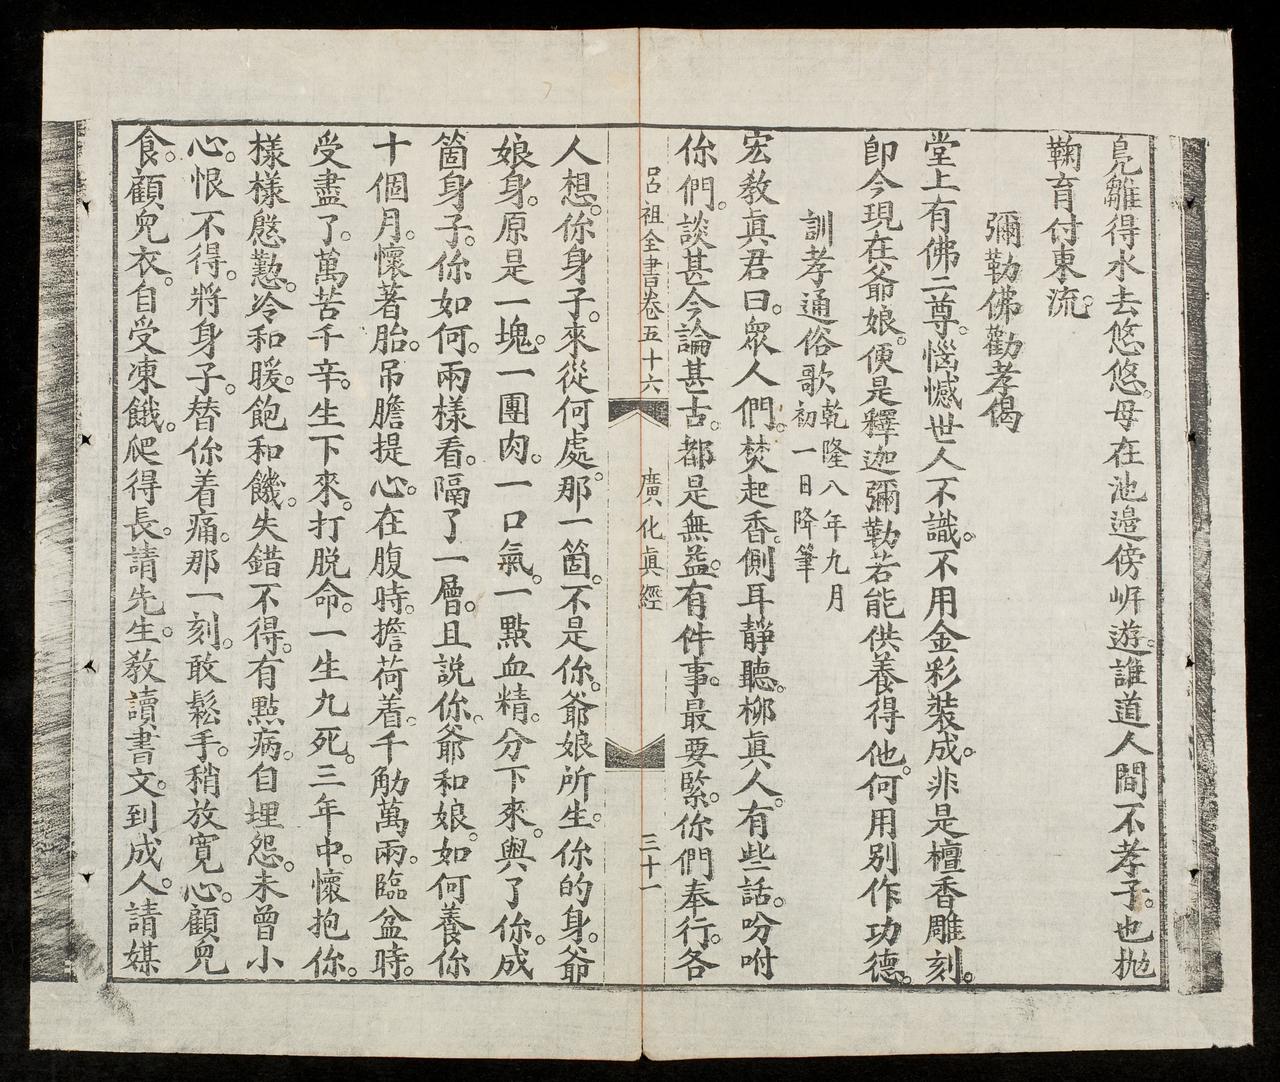 鳧雛得水去悠悠。母在池邊傍岍遊。誰道人間不孝子。也拋
鞠育付東流。
彌勒佛勸孝偈
堂上有佛二尊。惱憾世人不識。不用金彩裝成。非是檀香雕刻。
卽今現在爺娘。便是釋迦彌勒若能供養得他。何用別作功德。
訓孝通俗歌乾隆八年九月
初一日降筆
宏敎眞君曰。眾人們。焚起香。側耳靜聽。柳眞人。有些話。吩咐
你們。談甚今論甚古。都是無益。有件事。最要緊。你們奉行。各
呂祖全書卷五十六 廣化眞經 三十一
人想。你身子。來從何處。那一箇。不是你。爺娘所生。你的身。爺
娘身。原是一塊。一團肉。一口氣。一點血精。分下來。與了你。成
箇身子。你如何。兩樣看。隔了一層。且說你。爺和娘。如何養你
十個月。懷著胎。吊膽提心。在腹時。擔荷着。千觔萬兩。臨盆時。
受盡了。萬苦千辛。生下來。打脫命。一生九死。三年中。懷抱你。
樣樣慇懃。冷和暖。飽和饑。失錯不得。有點病。自埋怨。未曾小
心。恨不得。將身子。替你着痛。那一刻。敢鬆手。稍放寬心。顧兒
食。顧兒衣。自受凍餓。爬得長。請先生。敎讀書文。到成人。請媒